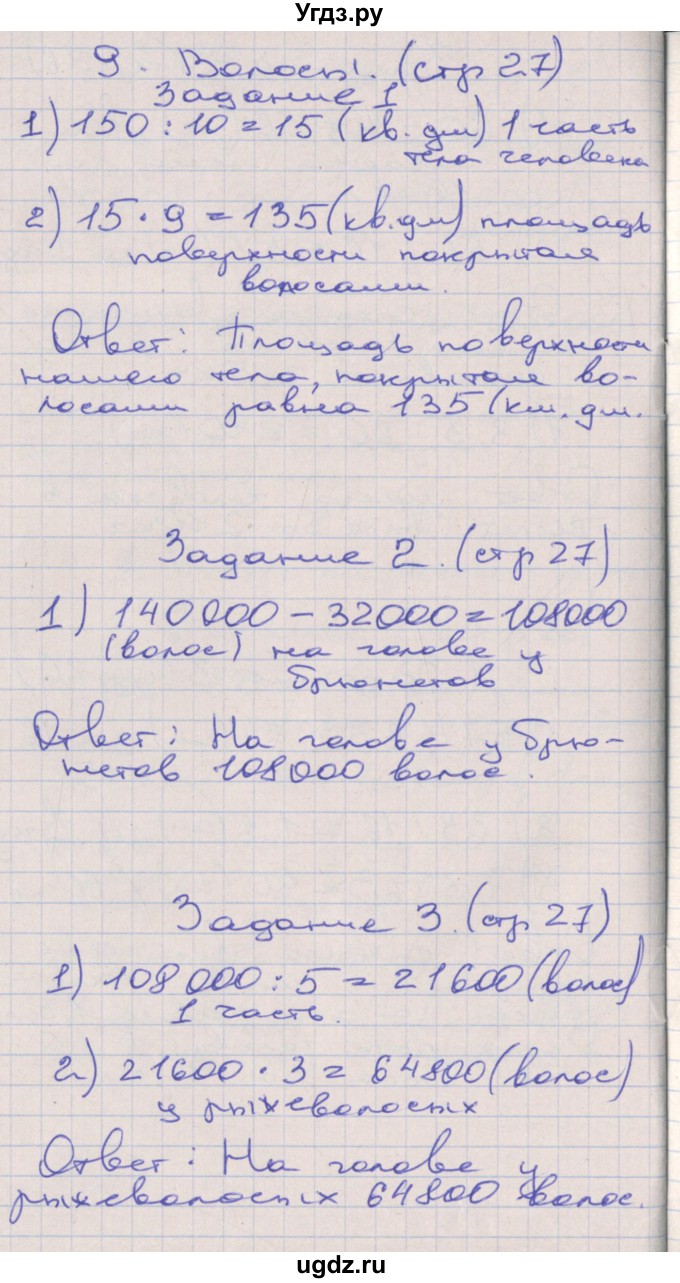 Угдз.ру
9. Волосы. (стр 27)
Задание 1
1) 150 : 10 = 15 (кв. дм) 1 часть
тела человека
2) 15 · 9 = 135 (кв. дм) площадь
поверхности покрытая
волосами.
Ответ: Площадь поверхности
нашего тела, покрытая во-
лосами равна 135 (км. дм.
Задание 2. (стр 27)
1) 140000 - 32000 = 108000
(волос) на голове у
брюнетов
Ответ: На голове у брю-
нетов 108000 волос.
Задание 3. (стр 27)
1) 108 000 : 5 = 21600 (волос)
1 часть.
2) 21600 · 3 = 64800 (волос)
у рыжеволосых
Ответ: На голове у
рыжеволосых 64800 волос.
ugdz.ru